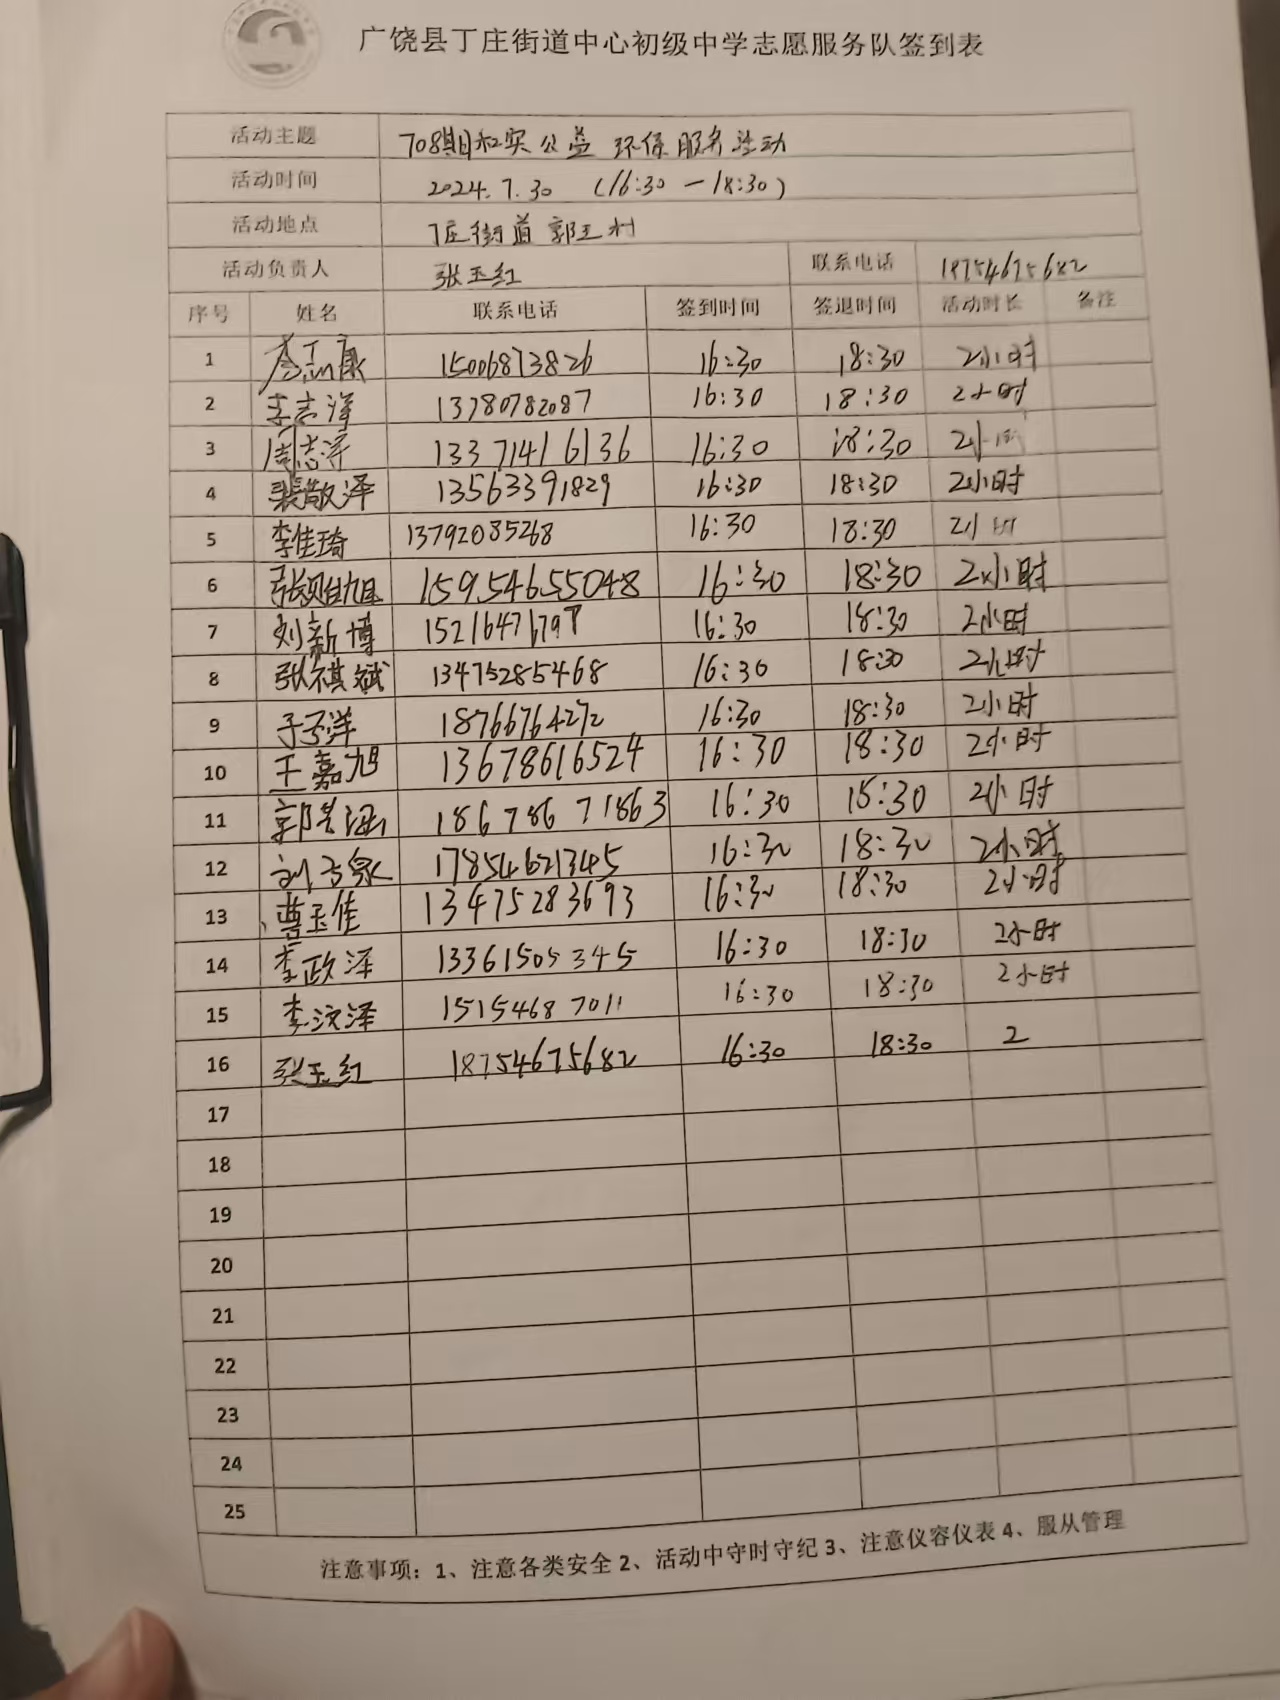 广饶县丁庄街道中心初级中学志愿服务队签到表
活动主题 708期日和实公益 环保服务活动
活动时间 2024.7.30 (16:30-18:30)
活动地点 丁庄街道 郭王村
活动负责人 张玉红 联系电话 18754675682
序号 姓名 联系电话 签到时间 签退时间 活动时长 备注
1 15006873826 16:30 18:30 2小时
2 李志泽 13780782087 16:30 18:30 2小时
3 周志泽 13371416136 16:30 18:30 2小时
4 裴敬泽 13563391829 16:30 18:30 2小时
5 李佳琦 13792085268 16:30 18:30 2小时
6 15954655048 16:30 18:30 2小时
7 刘新博 15216471797 16:30 18:30 2小时
8 张祺斌 13475285468 16:30 18:30 2小时
9 于子洋 18766764272 16:30 18:30 2小时
10 王嘉旭 13678616524 16:30 18:30 2小时
11 18678671863 16:30 18:30 2小时
12 17854621345 16:30 18:30 2小时
13 曹玉佳 13475283693 16:30 18:30 2小时
14 李政泽 13361505345 16:30 18:30 2小时
15 李汶泽 15154687011 16:30 18:30 2小时
16 张玉红 18754675682 16:30 18:30 2
17
18
19
20
21
22
23
24
25
注意事项：1、注意各类安全 2、活动中守时守纪 3、注意仪容仪表 4、服从管理